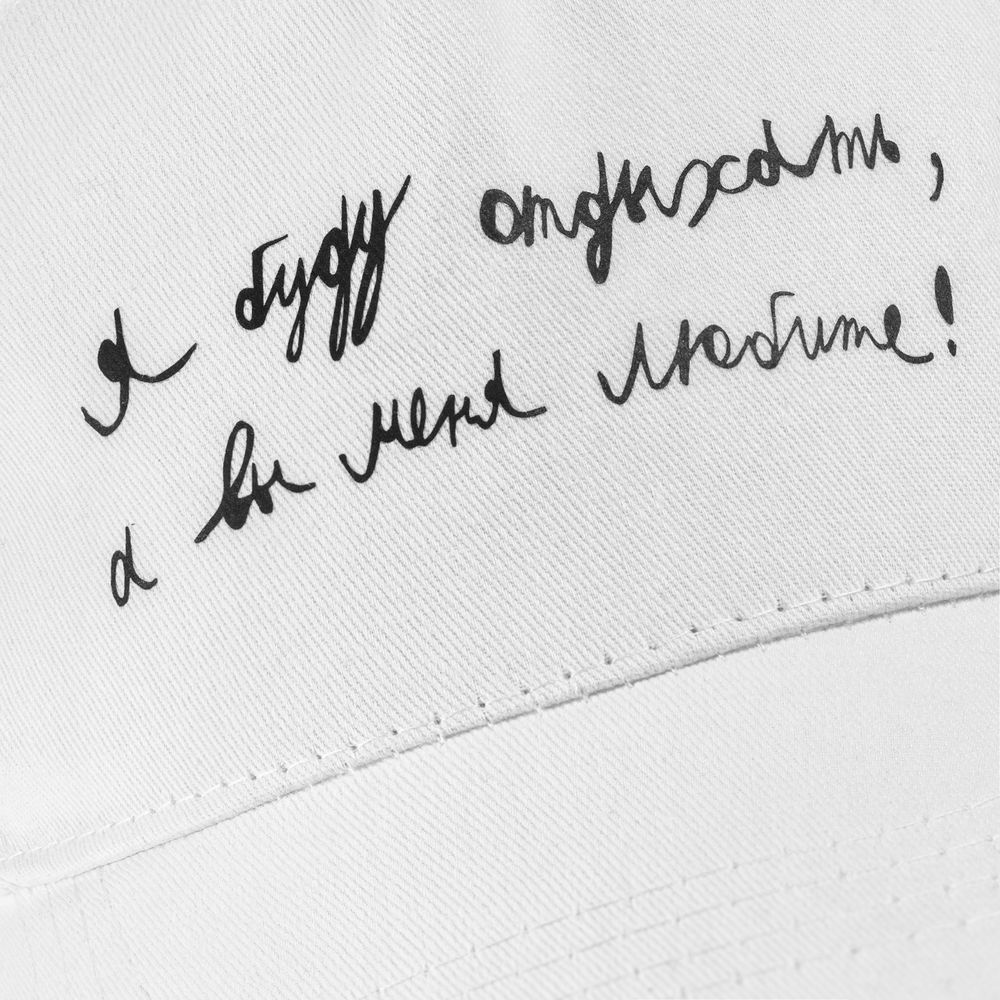 я буду отдыхать,
а вы меня любите!